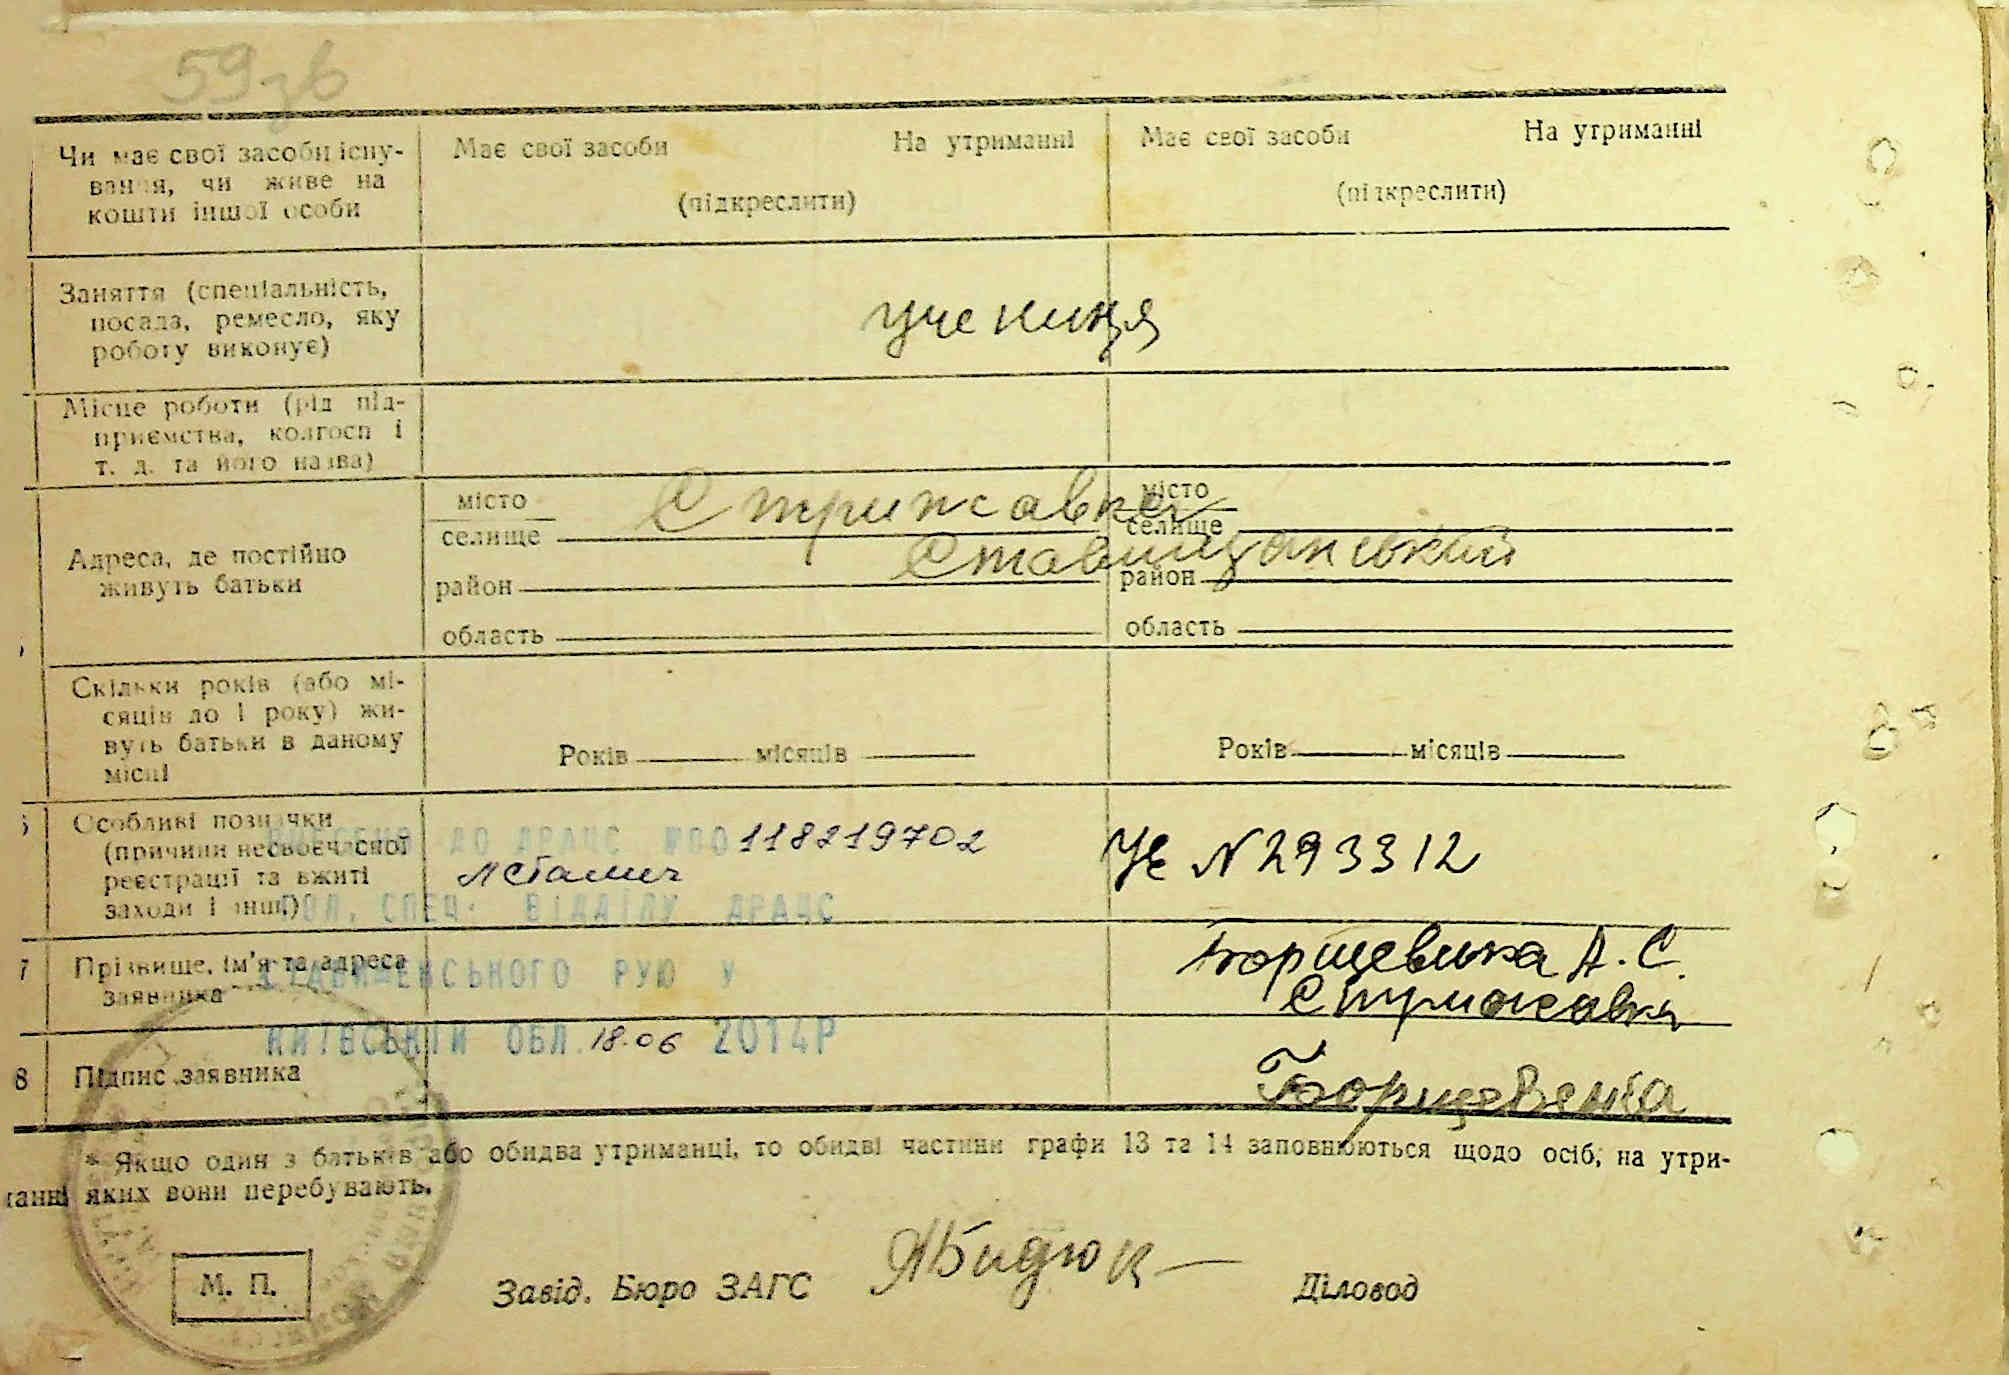 59зв
Чи має свої засоби існу-
вання, чи живе на
кошти іншої особи
Має свої засоби На утриманні
(підкреслити)
Має свої засоби На утриманні
(підкреслити)
Заняття (спеціальність,
посада, ремесло, яку
роботу виконує)
учениця
Місце роботи (рід під-
приємства, колгосп і
т. д. та його назва)
Адреса, де постійно
живуть батьки
місто
селище
район
область
Стрижавка
Ставищанський
місто
селище
район
область
Скільки років (або мі-
сяців до 1 року) жи-
вуть батьки в даному
місці
Років місяців
Років місяців
Особливі позначки
(причини несвоєчасної
реєстрації та вжиті
заходи і інш.)
ДО ДРАЦС №00118219702
СПЕЦ. ВІДДІЛУ ДРАЦС
СТАВИЩЕНСЬКОГО РУЮ У
КИЇВСЬКІЙ ОБЛ. 18.06 2014Р
УЕ N 293312
7 Прізвище, ім'я та адреса
заявника
Борщевика А. С.
Стрижавка
8 Підпис заявника
* Якщо один з батьків або обидва утриманці, то обидві частини графи 13 та 14 заповнюються щодо осіб, на утри-
манні яких вони перебувають.
М. П.
Завід. Бюро ЗАГС
Діловод